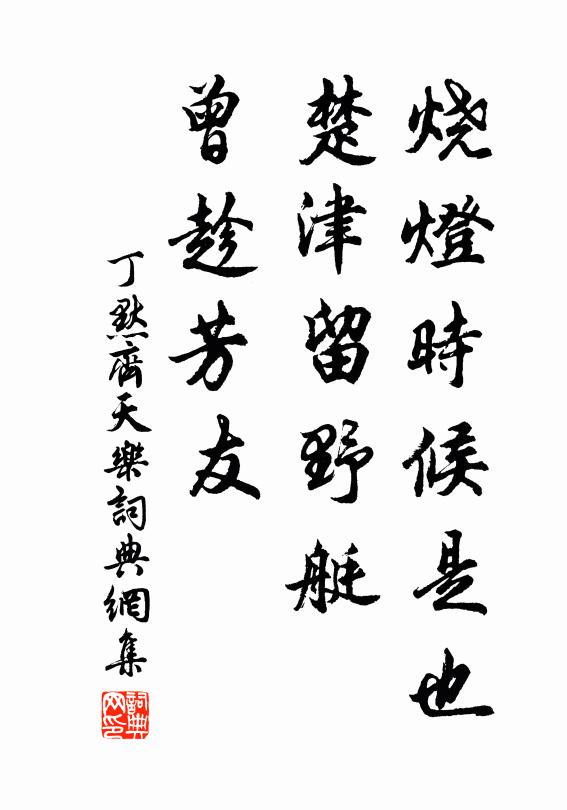 烧燈時候是也
楚津留野艇
曾趁芳友
丁黙齊天樂詞典網集
詞典网印